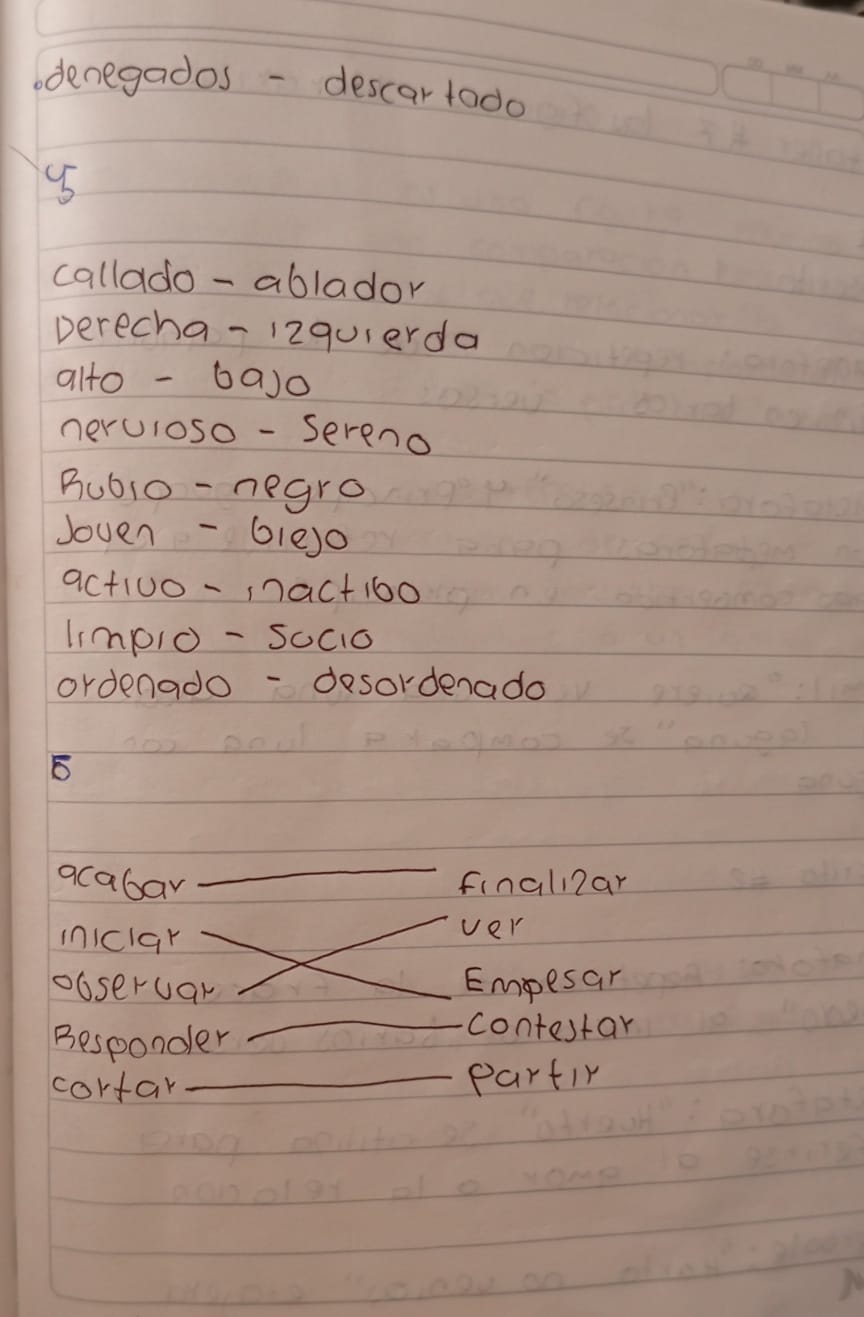 .denegados - descartado
4
callado - ablador
Derecha - izquierda
alto - bajo
nervioso - sereno
Rubio - negro
Joven - biejo
activo - inactibo
limpio - Sucio
ordenado - desordenado
5
acabar finalizar
iniciar ver
observar Empesar
Responder contestar
cortar partir